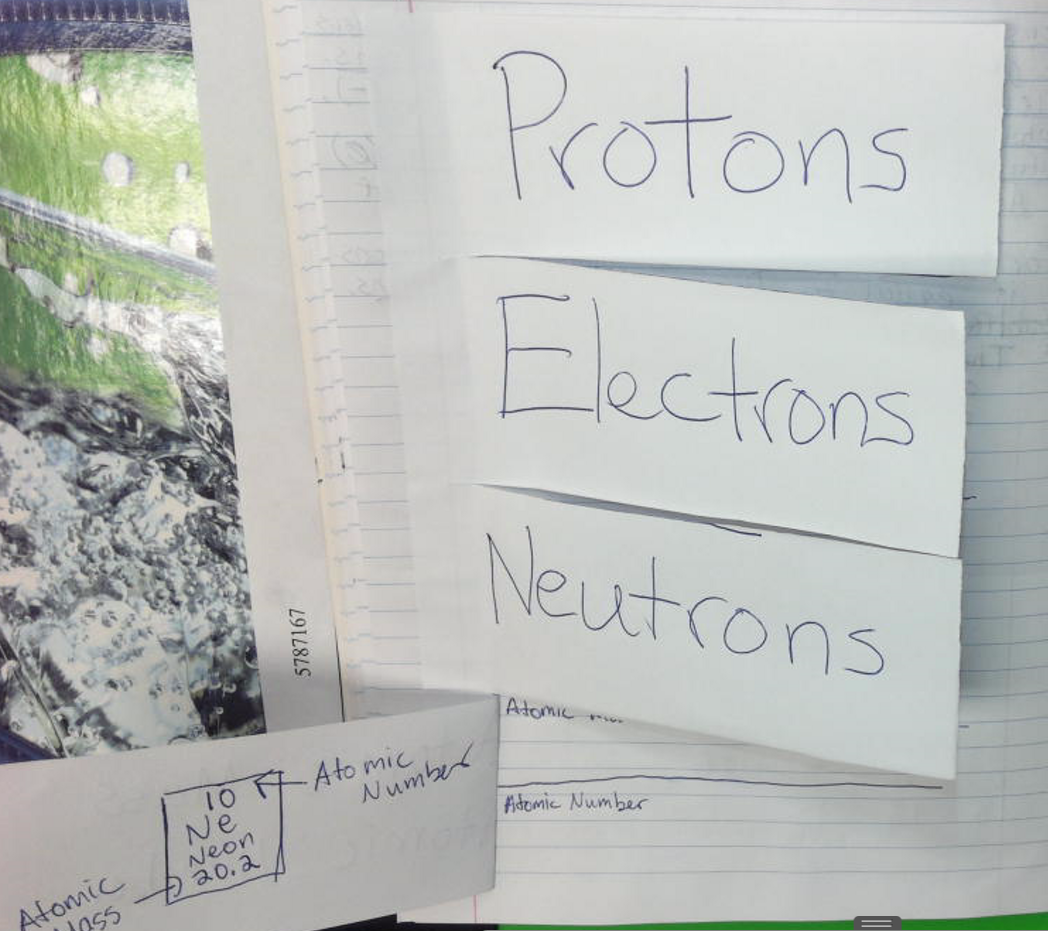 Protons
Electrons
Neutrons
5787167
Atomic
Atomic Number
10
Ne
Neon
20.2
Atomic
Number
Atomic